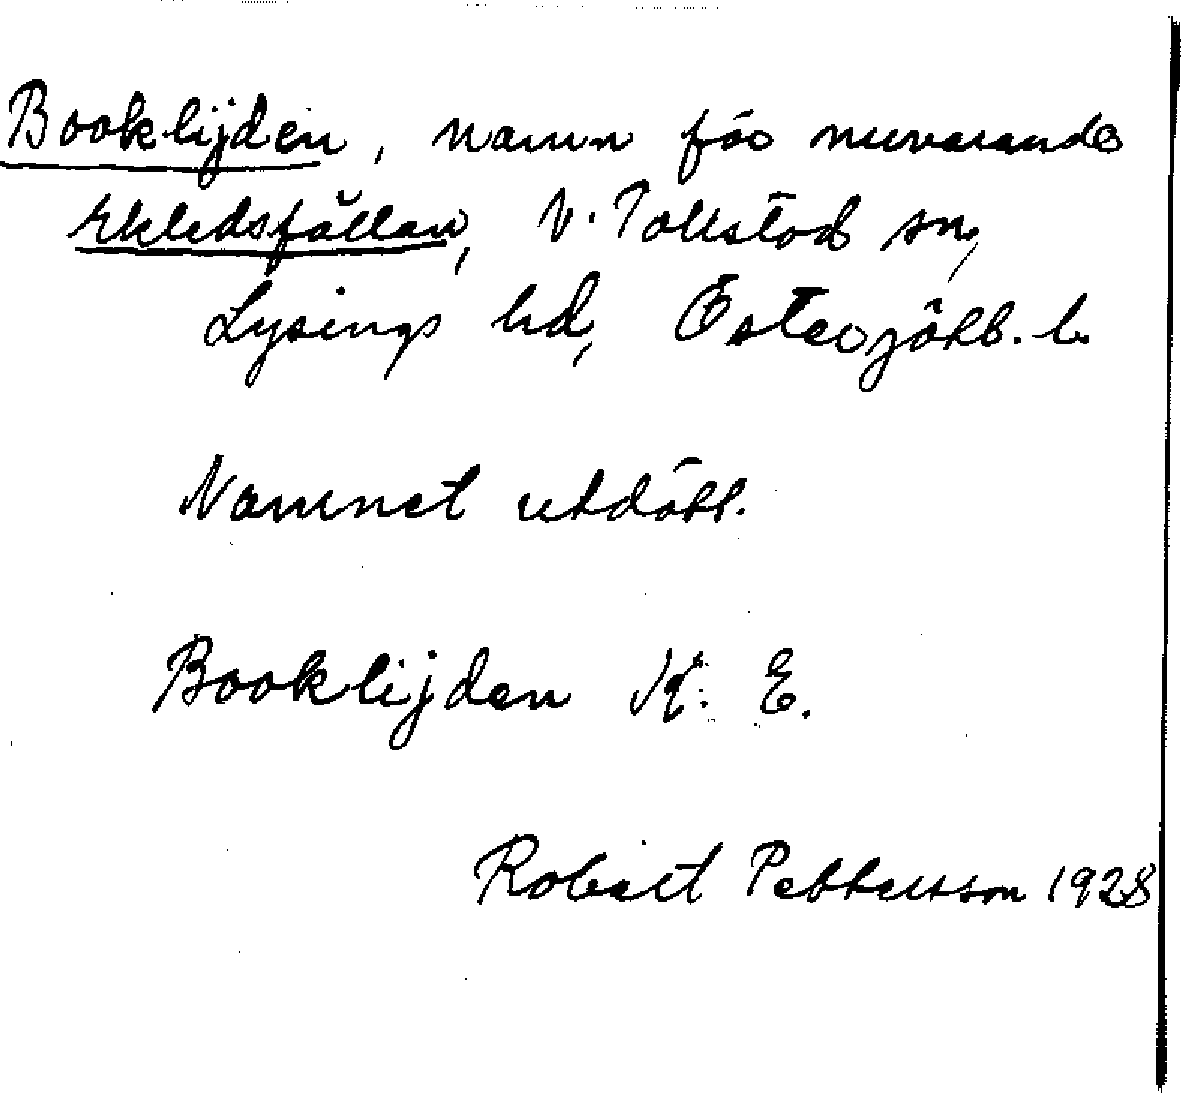 Booklijden, namn för nuvarande
Ekledsfållan, V. Tollstad sn,
Lysings hd, Östergötl. l.
Namnet utdött.
Booklijden K. E.
Robert Pettersson 1928